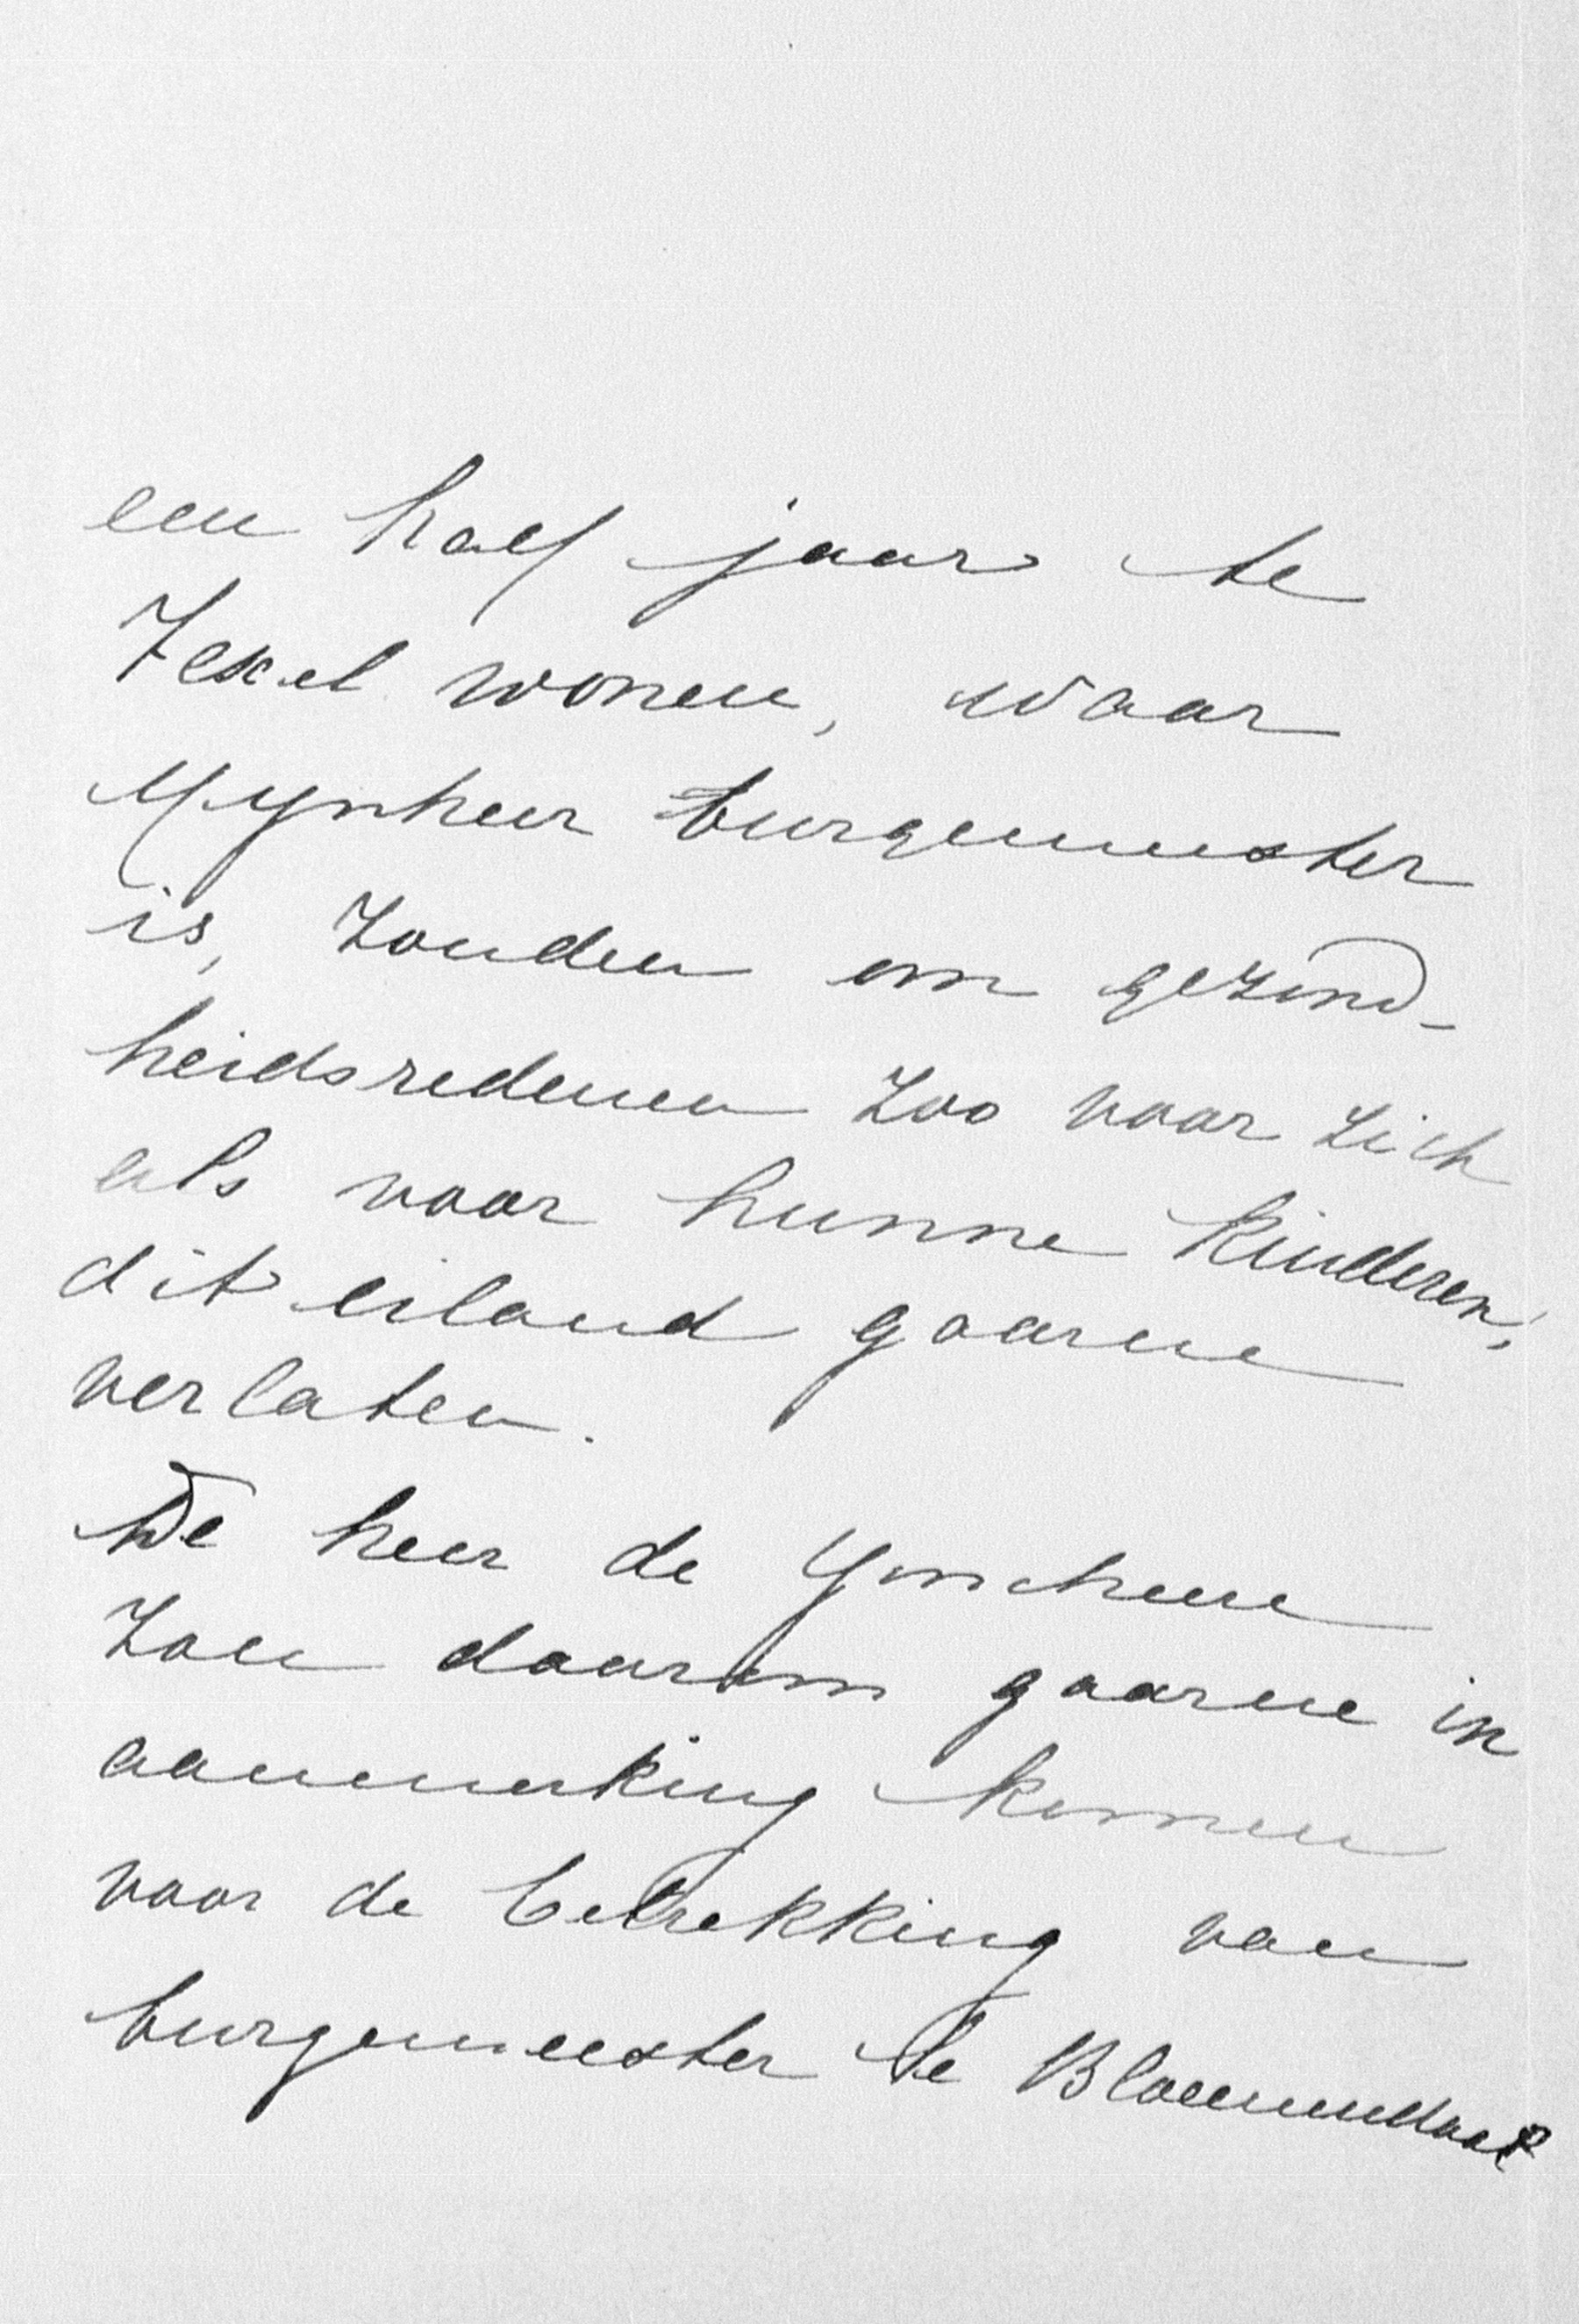 een half jaar te
Texel wonen, waar
Mynheer burgemeester
is, zouden om gezond-
heidsredenen zoo voor zich
als voor hunne kinderen,
dit eiland gaarne
verlaten.
De heer de
zou daarom gaarne in
aanmerking komen
voor de betrekking van
burgemeester te Bloemendaal